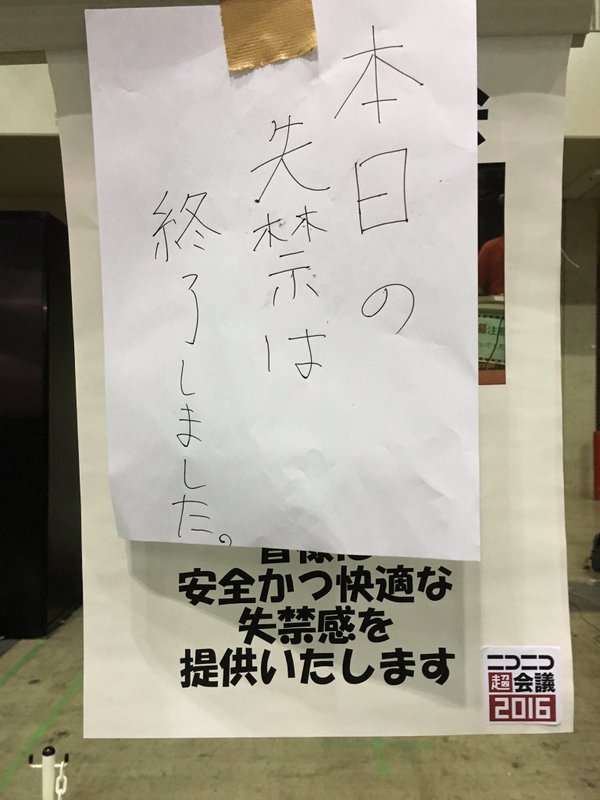 本日の
失禁は
終了しました。
皆様に
安全かつ快適な
失禁感を
提供いたします
ニコニコ
超会議
2016